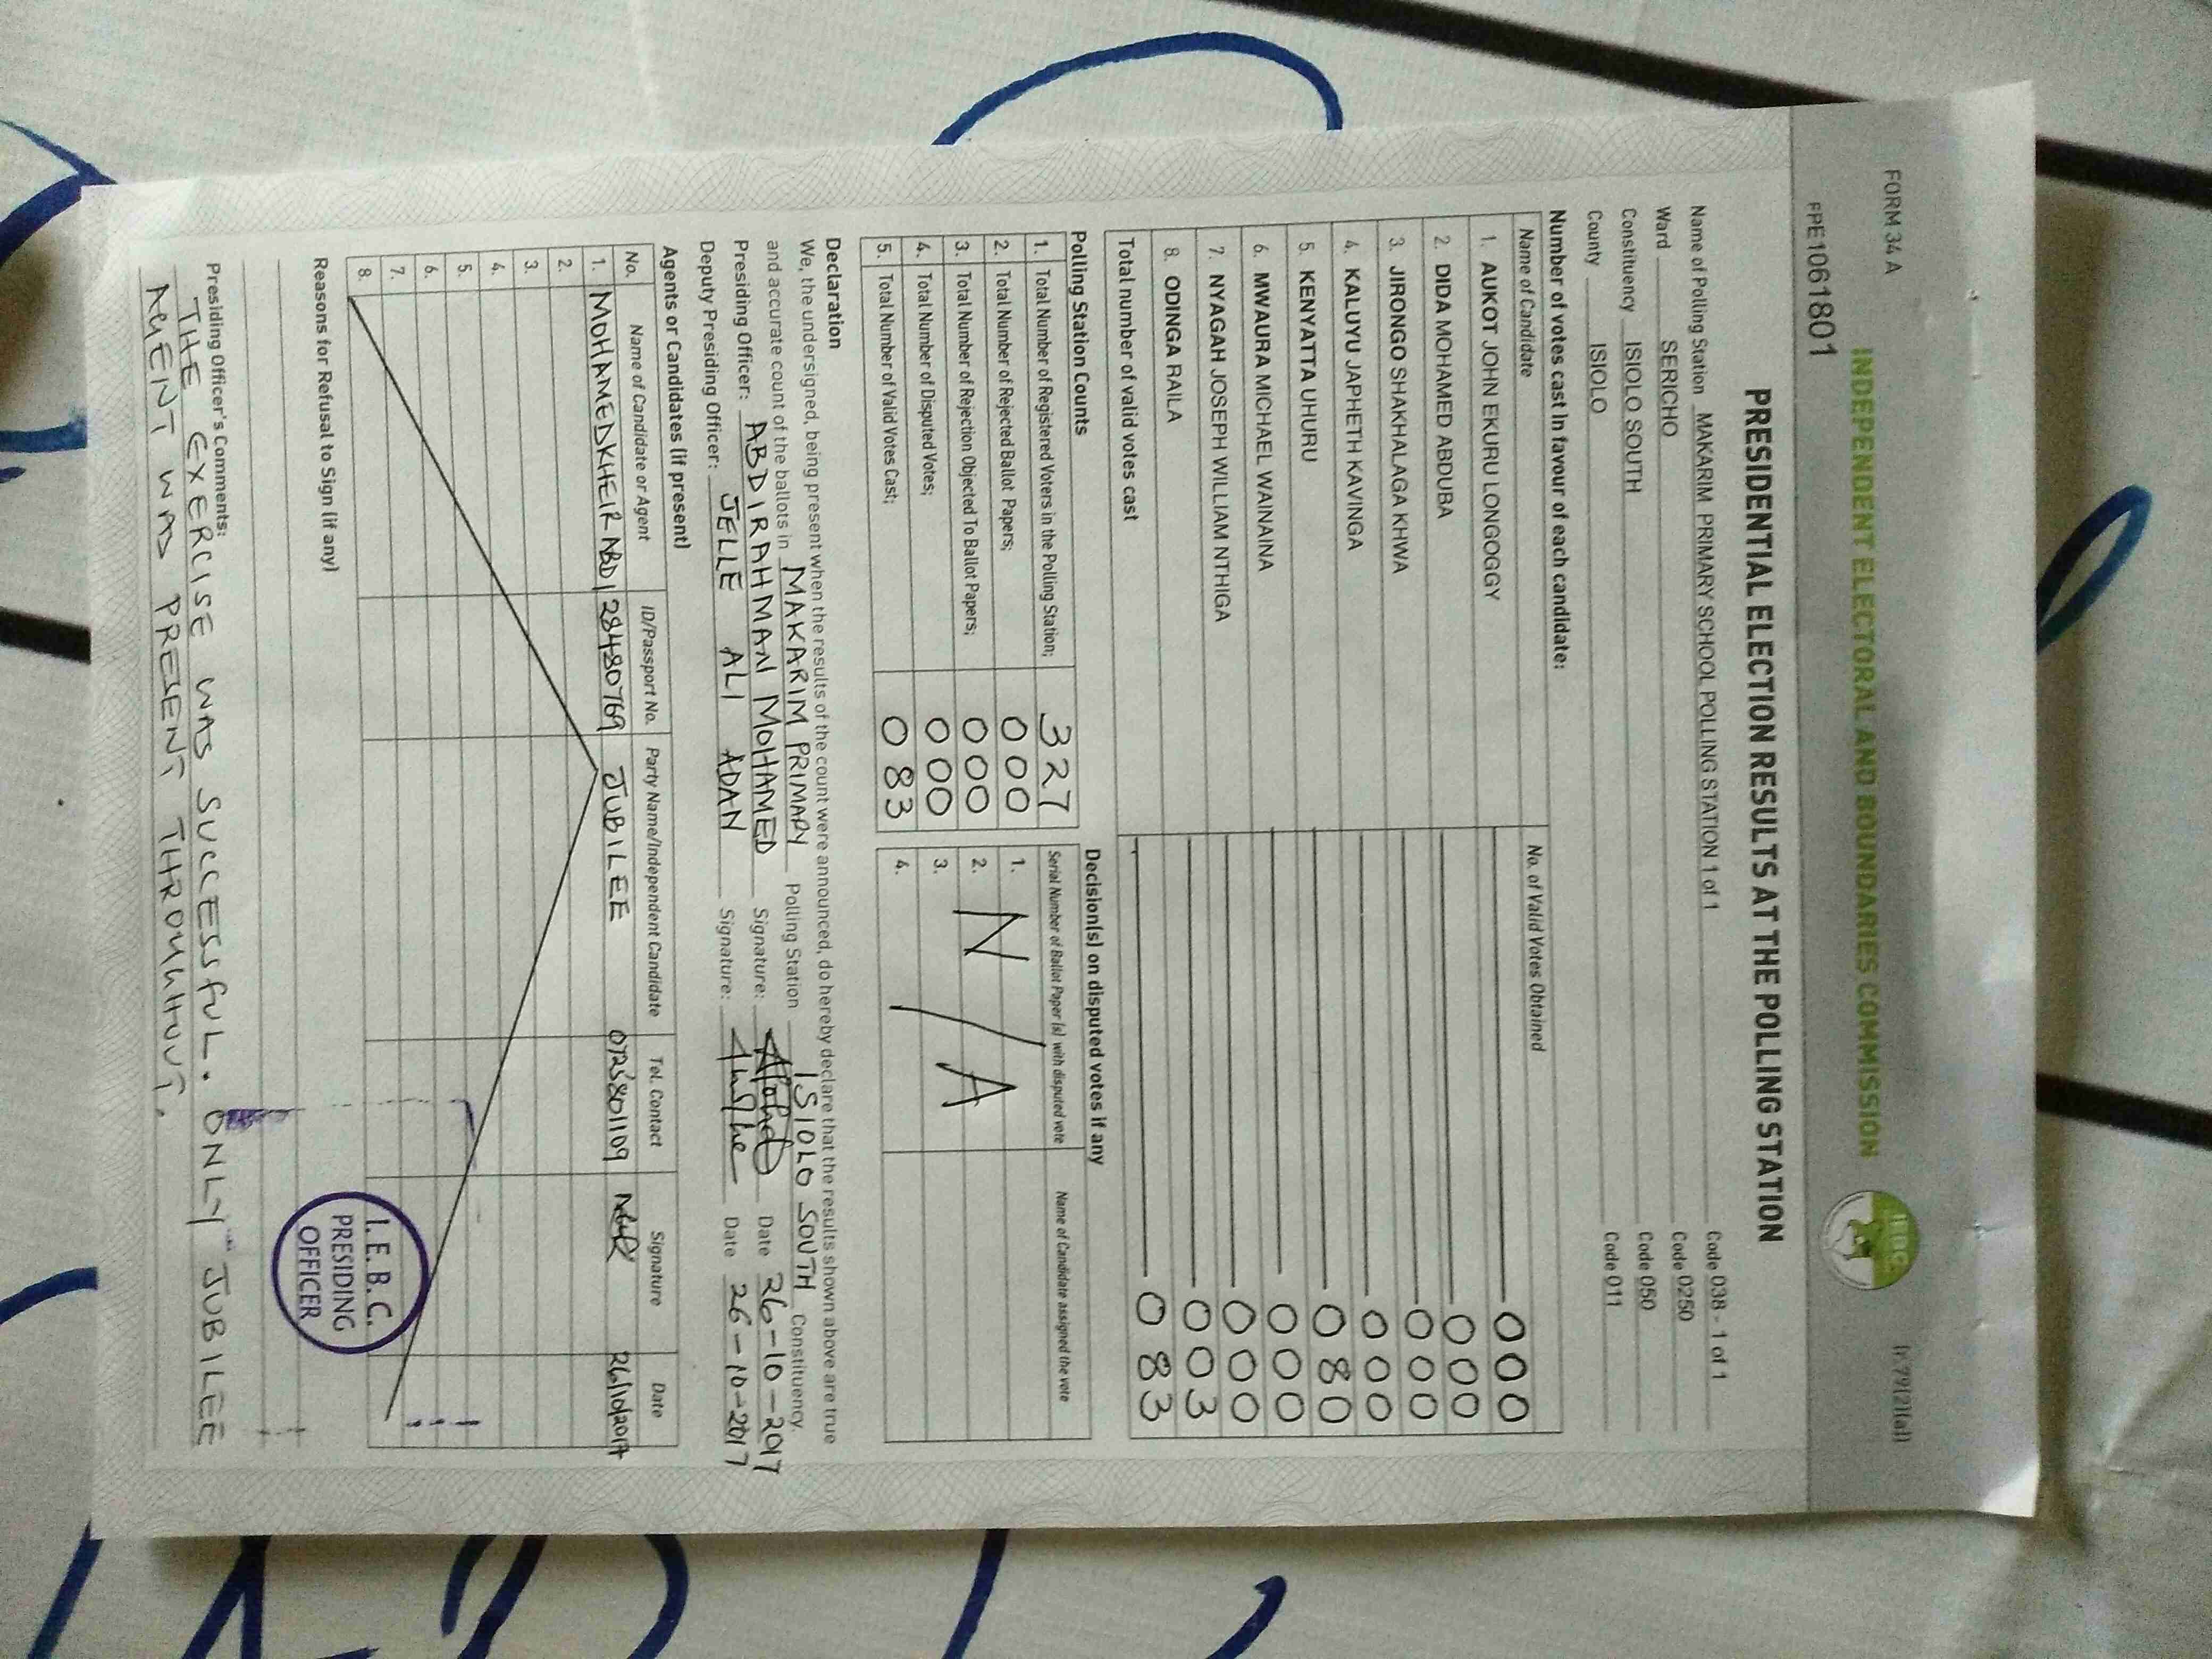 FORM 34 A
INDEPENDENT ELECTORAL AND BOUNDARIES COMMISSION
IEBC
(r.79(2)(a))
FPE1061801
PRESIDENTIAL ELECTION RESULTS AT THE POLLING STATION
Name of Polling Station MAKARIM PRIMARY SCHOOL POLLING STATION 1 of 1 Code 038 - 1 of 1
Ward SERICHO Code 0250
Constituency ISIOLO SOUTH Code 050
County ISIOLO Code 011
Number of votes cast in favour of each candidate:
Name of Candidate No. of Valid Votes Obtained
1. AUKOT JOHN EKURU LONGOGGY 000
2. DIDA MOHAMED ABDUBA 000
3. JIRONGO SHAKHALAGA KHWA 000
4. KALUYU JAPHETH KAVINGA 000
5. KENYATTA UHURU 080
6. MWAURA MICHAEL WAINAINA 000
7. NYAGAH JOSEPH WILLIAM NTHIGA 000
8. ODINGA RAILA 003
Total number of valid votes cast 083
Polling Station Counts
1. Total Number of Registered Voters in the Polling Station; 327
2. Total Number of Rejected Ballot Papers; 000
3. Total Number of Rejection Objected To Ballot Papers; 000
4. Total Number of Disputed Votes; 000
5. Total Number of Valid Votes Cast; 083
Decision(s) on disputed votes if any
Serial Number of Ballot Paper (s) with disputed vote Name of Candidate assigned the vote
1.
2.
3.
4.
N/A
Declaration
We, the undersigned, being present when the results of the count were announced, do hereby declare that the results shown above are true
and accurate count of the ballots in MAKARIM PRIMARY Polling Station ISIOLO SOUTH Constituency.
Presiding Officer: ABDIRAHMAN MOHAMED Signature: Date 26-10-2017
Deputy Presiding Officer: JELLE ALI ADAN Signature: Date 26-10-2017
Agents or Candidates (if present)
No. Name of Candidate or Agent ID/Passport No. Party Name/Independent Candidate Tel. Contact Signature Date
1. MOHAMEDKHEIR ABDI 28480769 JUBILEE 0725801109 26/10/2017
2.
3.
4.
5.
6.
7.
8.
I.E.B.C.
PRESIDING
OFFICER
Reasons for Refusal to Sign (if any)
Presiding Officer's Comments:
THE EXERCISE WAS SUCCESSFUL. ONLY JUBILEE
AGENT WAS PRESENT THROUGHOUT.